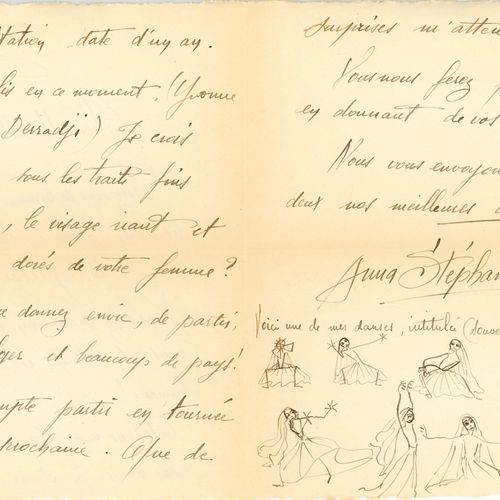 tation date d'un an.
lis en ce moment, (Yvonne
Derradji) Je crois
sous les traits fins
, le visage riant et
dorés de votre femme?
donnez envie, de partir,
et beaucoup de pays!
mpte partir en tournée
prochaine. Que de
surprises m'atten
Vous nous ferez
en donnant de vos
Nous vous envoyon
deux nos meilleures
Anna Stéphan
Voici une de mes danses, intitulée (Souve